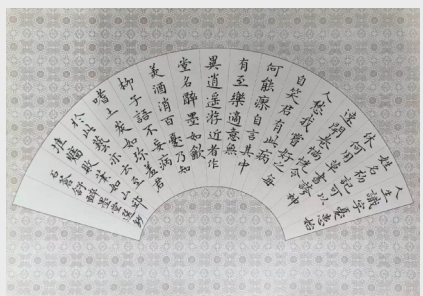 人生識字憂患始
姓名粗記可以
休何用草書誇神
速開卷惝怳令
人愁我嘗好之每
自笑君有此病
何能瘳自言其中
有至樂適意無
異逍遙遊近者作
堂名醉墨如飲
美酒消百憂乃知
柳子語不妄病
嗜土炭如珍羞君
於此藝亦云至
堆牆敗筆如山丘
石蒼舒醉墨堂